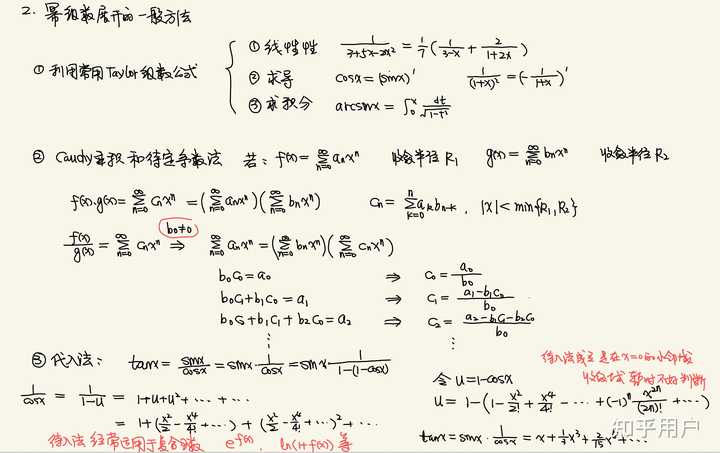 2. 幂级数展开的一般方法
① 利用常用Taylor级数公式
① 线性性 1/(3+5x-2x²) = 1/7 (1/(3-x) + 2/(1+2x))
② 求导 cosx = (sinx)' 1/(1+x)² = (-1/(1+x))'
③ 求积分 arcsinx = ∫₀ˣ dt/√(1-t²)
② Caudy乘积和待定系数法 若: f(x) = ∑_{n=0}^∞ aₙxⁿ 收敛半径R₁ g(x) = ∑_{n=0}^∞ bₙxⁿ 收敛半径R₂
f(x).g(x) = ∑_{n=0}^∞ cₙxⁿ = (∑_{n=0}^∞ aₙxⁿ)(∑_{n=0}^∞ bₙxⁿ) cₙ = ∑_{k=0}^n a_k b_{n-k} , |x| < min{R₁, R₂}
b₀≠0
f(x)/g(x) = ∑_{n=0}^∞ cₙxⁿ ⇒ ∑_{n=0}^∞ aₙxⁿ = (∑_{n=0}^∞ bₙxⁿ)(∑_{n=0}^∞ cₙxⁿ)
b₀c₀ = a₀ ⇒ c₀ = a₀/b₀
b₀c₁+b₁c₀ = a₁ ⇒ c₁ = (a₁-b₁c₀)/b₀
b₀c₂+b₁c₁+b₂c₀ = a₂ ⇒ c₂ = (a₂-b₁c₁-b₂c₀)/b₀
⋮ ⋮
③ 代入法: tanx = sinx/cosx = sinx · 1/cosx = sinx · 1/(1-(1-cosx))
待入法成立是在x=0的小邻域
收敛域暂时不好判断
令 u = 1-cosx
1/cosx = 1/(1-u) = 1+u+u²+ ··· ···
u = 1-(1 - x²/2! + x⁴/4! - ··· + (-1)ⁿ x²ⁿ/(2n)! + ···)
= 1+(x²/2 - x⁴/4! + ···) + (x²/2 - x⁴/4! + ···)² + ···
tanx = sinx · 1/cosx = x + 1/3 x³ + 2/15 x⁵ + ···
待入法经常适用于复合函数 e^{f(x)}, ln(1+f(x)) 等
知乎用户